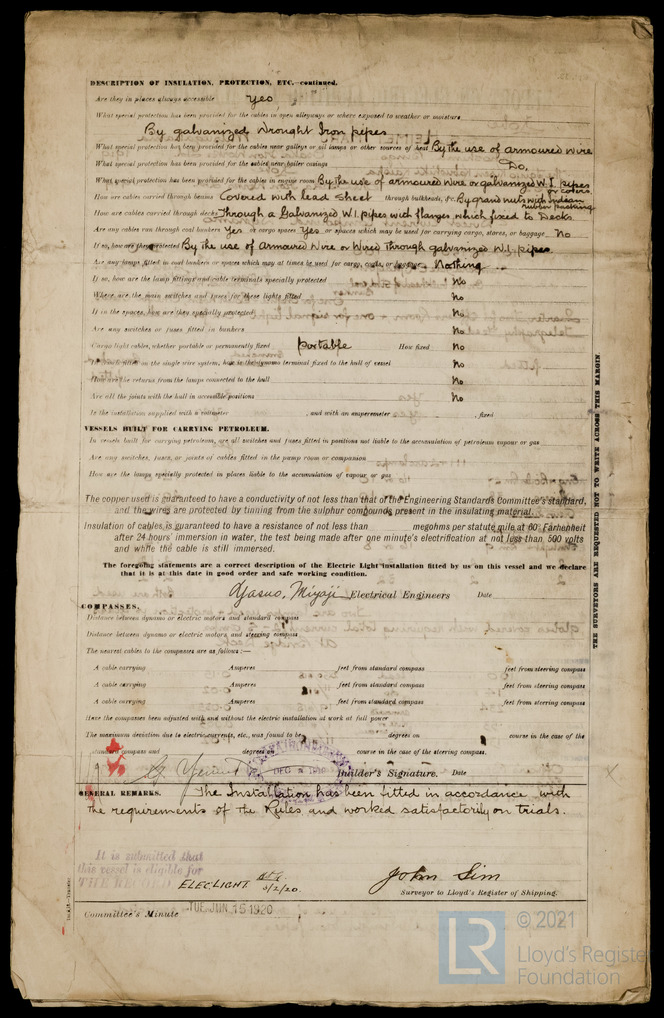 DESCRIPTION OF INSULATION, PROTECTION, ETC.—continued.
Are they in places always accessible Yes
What special protection has been provided for the cables in open alleyways or where exposed to weather or moisture
By galvanized Wrought Iron pipes
What special protection has been provided for the cables near galleys or oil lamps or other sources of heat By the use of armoured wire
What special protection has been provided for the cables near boiler casings Do.
What special protection has been provided for the cables in engine room By the use of armoured wire or galvanized W.I. pipes or covers
How are cables carried through beams Covered with lead sheet through bulkheads, &c. By grand nuts with Indian rubber bushing
How are cables carried through decks Through a Galvanized W.I. pipes with flanges which fixed to Decks
Are any cables run through coal bunkers Yes or cargo spaces Yes or spaces which may be used for carrying cargo, stores, or baggage No
If so, how are they protected By the use of Armoured Wire or Wired through galvanized W.I. pipes
Are any lamps fitted in coal bunkers or spaces which may at times be used for cargo, coals, or baggage Nothing
If so, how are the lamp fittings and cable terminals specially protected No
Where are the main switches and fuses for these lights fitted No
If in the spaces, how are they specially protected No
Are any switches or fuses fitted in bunkers No
Cargo light cables, whether portable or permanently fixed Portable How fixed No
fitted on the single wire system, how is the dynamo terminal fixed to the hull of vessel No
How are the returns from the lamps connected to the hull No
Are all the joints with the hull in accessible positions No
Is the installation supplied with a voltmeter , and with an amperemeter , fixed
VESSELS BUILT FOR CARRYING PETROLEUM.
In vessels built for carrying petroleum, are all switches and fuses fitted in positions not liable to the accumulation of petroleum vapour or gas
Are any switches, fuses, or joints of cables fitted in the pump room or companion
How are the lamps specially protected in places liable to the accumulation of vapour or gas
The copper used is guaranteed to have a conductivity of not less than that of the Engineering Standards Committee's standard,
and the wires are protected by tinning from the sulphur compounds present in the insulating material.
Insulation of cables is guaranteed to have a resistance of not less than megohms per statute mile at 60° Farhenheit
after 24 hours' immersion in water, the test being made after one minute's electrification at not less than 500 volts
and while the cable is still immersed.
The foregoing statements are a correct description of the Electric Light installation fitted by us on this vessel and we declare
that it is at this date in good order and safe working condition.
Miyaji Electrical Engineers Date
COMPASSES.
Distance between dynamo or electric motors and standard compass
Distance between dynamo or electric motors and steering compass
The nearest cables to the compasses are as follows:—
A cable carrying Amperes feet from standard compass feet from steering compass
A cable carrying Amperes feet from standard compass feet from steering compass
A cable carrying Amperes feet from standard compass feet from steering compass
Have the compasses been adjusted with and without the electric installation at work at full power
The maximum deviation due to electric currents, etc., was found to be degrees on course in the case of the
standard compass and degrees on course in the case of the steering compass.
DEC Builder's Signature. Date
GENERAL REMARKS. The Installation has been fitted in accordance with
the requirements of the Rules and worked satisfactorily on trials.
It is submitted that
this vessel is eligible for
THE RECORD ELEC LIGHT 3/2/20.
John Sim
Surveyor to Lloyd's Register of Shipping.
Committee's Minute TUE. JUN. 15 1920
THE SURVEYORS ARE REQUESTED NOT TO WRITE ACROSS THIS MARGIN.
LR
© 2021
Lloyd's Register
Foundation